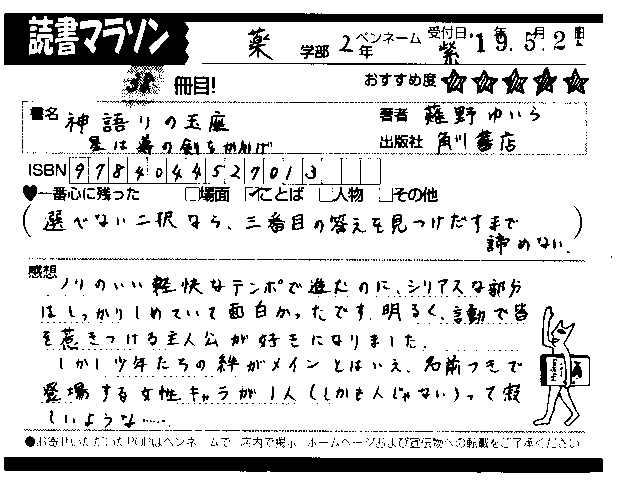 読書マラソン
薬 学部 2年 ペンネーム 紫 受付日 '19.5.21
38 冊目!
おすすめ度 ☆☆☆☆☆
書名 神語りの玉座
星は着の剣をかかげ
著者 薙野ゆいら
出版社 角川書店
ISBN 9784044527013
♥一番心に残った □場面 ☑ことば □人物 □その他
(選べない二択なら、三番目の答えを見つけだすまで
諦めない。)
感想
ノリのいい軽快なテンポで進むのに、シリアスな部分
はしっかりしめていて面白かったです。明るく、言動で皆
を惹きつける主人公が好きになりました。
しかし少年たちの絆がメインとはいえ、名前つきで
登場する女性キャラが1人(しかも人じゃない)って寂
しいような……
●お寄せいただいたPOPはペンネームで 店内で掲示 ホームページおよび宣伝物への転載をご了承ください